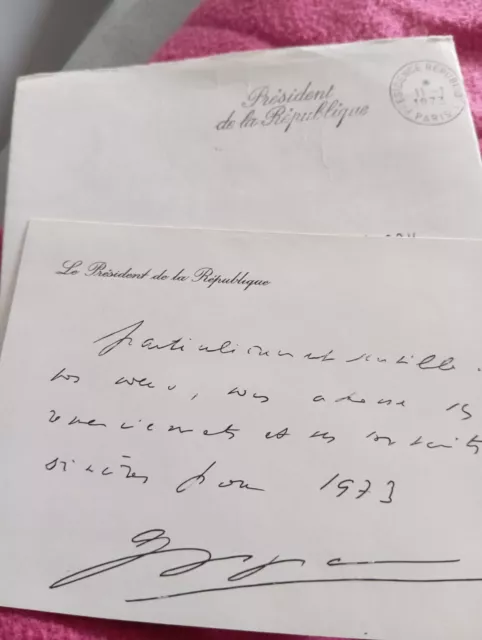 Président
de la République
PARIS
Le Président de la République
particulièrement sensible
vos vœux, vous adresse
remerciements et ses souhaits
sincères pour 1973